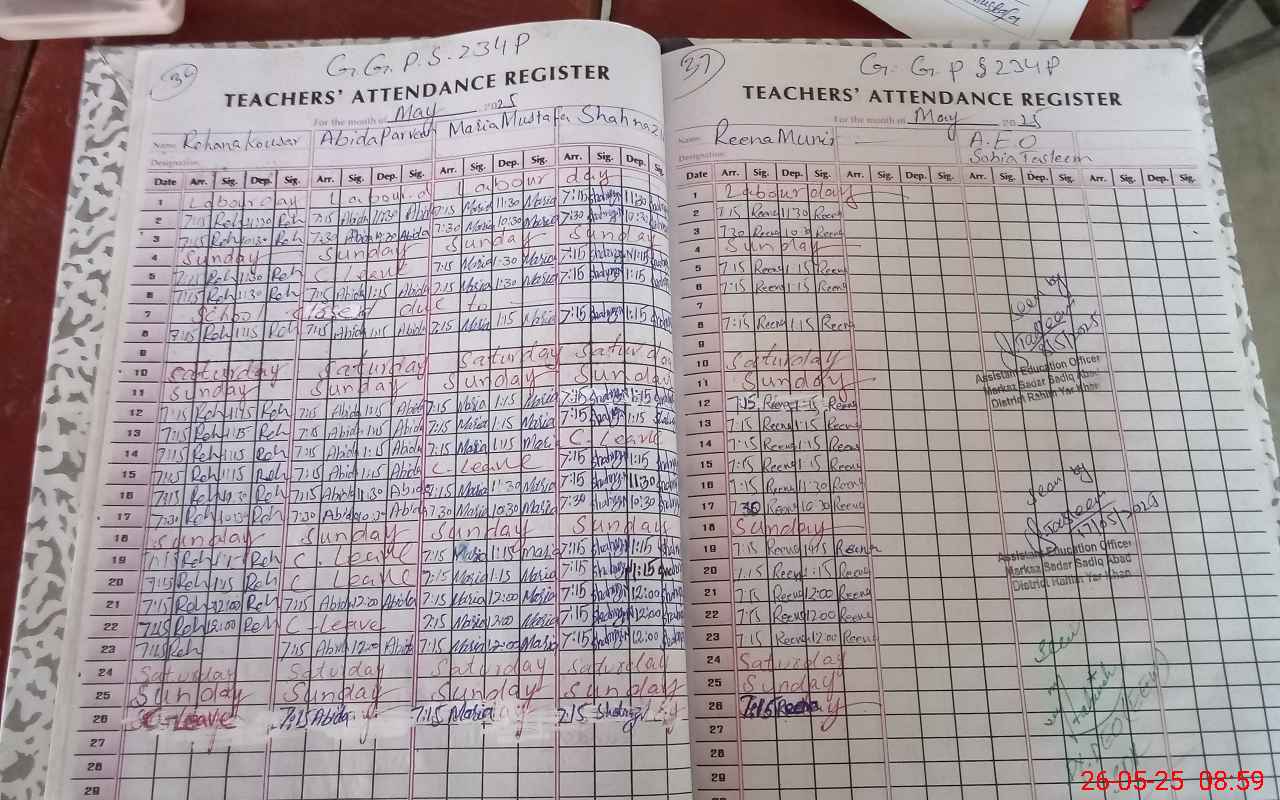 36
G. G. P. S. 234 P
TEACHERS' ATTENDANCE REGISTER
For the month of May 2025
Name: Rehana Kousar Abida Parveen Maria Mustafa Shahnaz
Designation:
Date Arr. Sig. Dep. Sig. Arr. Sig. Dep. Sig. Arr. Sig. Dep. Sig. Arr. Sig. Dep. Sig.
1 Labour day Labour d Labour day
2 7:15 Reh 11:30 Reh 7:15 Abida 11:30 Abida 7:15 Maria 11:30 Maria 7:15 Shahnaz 11:30
3 7:15 Reh 10:30 Reh 7:30 Abida 10:30 Abida 7:30 Maria 10:30 Maria 7:30 Shahnaz 10:30
4 Sunday Sunday Sunday Sunday
5 7:15 Reh 1:30 Reh C Leave 7:15 Maria 1:30 Maria 7:15 Shahnaz 1:15
6 7:15 Reh 1:30 Reh 7:15 Abida 1:15 Abida 7:15 Maria 1:30 Maria 7:15 Shahnaz 1:15
7 School closed due to
8 7:15 Reh 1:15 Reh 7:15 Abida 1:15 Abida 7:15 Maria 1:15 Maria 7:15 Shahnaz 1:15
9
10 Saturday Saturday Saturday Saturda
11 Sunday Sunday Sunday Sunday
12 7:15 Reh 1:15 Reh 7:15 Abida 1:15 Abida 7:15 Maria 1:15 Maria 7:15 Shahnaz 1:15
13 7:15 Reh 1:15 Reh 7:15 Abida 1:15 Abida 7:15 Maria 1:15 Maria 7:15 Shahnaz 1:15
14 7:15 Reh 1:15 Reh 7:15 Abida 1:15 Abida 7:15 Maria 1:15 Maria C. Leave
15 7:15 Reh 1:15 Reh 7:15 Abida 1:15 Abida C. Leave 7:15 Shahnaz 1:15
16 7:15 Reh 11:30 Reh 7:15 Abida 11:30 Abida 7:15 Maria 11:30 Maria 7:15 Shahnaz 11:30
17 7:30 Reh 10:30 Reh 7:30 Abida 10:30 Abida 7:30 Maria 10:30 Maria 7:30 Shahnaz 10:30
18 Sunday Sunday Sunday Sunday
19 7:15 Reh Reh C Leave 7:15 Maria 1:15 Maria 7:15 Shahnaz 1:15
20 7:15 Reh 1:15 Reh C Leave 7:15 Maria 1:15 Maria 7:15 Shahnaz 1:15
21 7:15 Reh 12:00 Reh 7:15 Abida 12:00 Abida 7:15 Maria 12:00 Maria 7:15 Shahnaz 12:00
22 7:15 Reh 12:00 Reh C - Leave 7:15 Maria 12:00 Maria 7:15 Shahnaz 12:00
23 7:15 Reh 7:15 Abida 12:00 Abida 7:15 Maria 12:00 Maria 7:15 Shahnaz 12:00
24 Saturday Saturday Saturday Saturday
25 Sunday Sunday Sunday Sunday
26 C-Leave 7:15 Abida 7:15 Maria 7:15 Shahnaz
27
28
29
37
G. G. P S 234 P
TEACHERS' ATTENDANCE REGISTER
For the month of May 2025
Name: Reena Munir A.E.O
Designation: Sobia Tasleem
Date Arr. Sig. Dep. Sig. Arr. Sig. Dep. Sig. Arr. Sig. Dep. Sig. Arr. Sig. Dep. Sig.
1 Labour day
2 7:15 Reena 11:30 Reena
3 7:30 Reena 10:30 Reena
4 Sunday
5 7:15 Reena 1:15 Reena
6 7:15 Reena 1:15 Reena
7
8 7:15 Reena 1:15 Reena
9
10 Saturday
11 Sunday
12 7:15 Reena 1:15 Reena
13 7:15 Reena 1:15 Reena
14 7:15 Reena 1:15 Reena
15 7:15 Reena 1:15 Reena
16 7:15 Reena 11:30 Reena
17 7:30 Reena 10:30 Reena
18 Sunday
19 7:15 Reena 1:15 Reena
20 7:15 Reena 1:15 Reena
21 7:15 Reena 12:00 Reena
22 7:15 Reena 12:00 Reena
23 7:15 Reena 12:00 Reena
24 Saturday
25 Sunday
26 7:15 Reena
27
28
29
Seen by
Tasleem
Assistant Education Officer
Markaz Sadar Sadiq Abad
District Rahim Yar Khan
Seen by
Tasleem
17/05/2025
Assistant Education Officer
Markaz Sadar Sadiq Abad
District Rahim Yar Khan
Seen
26-05-25 08:59